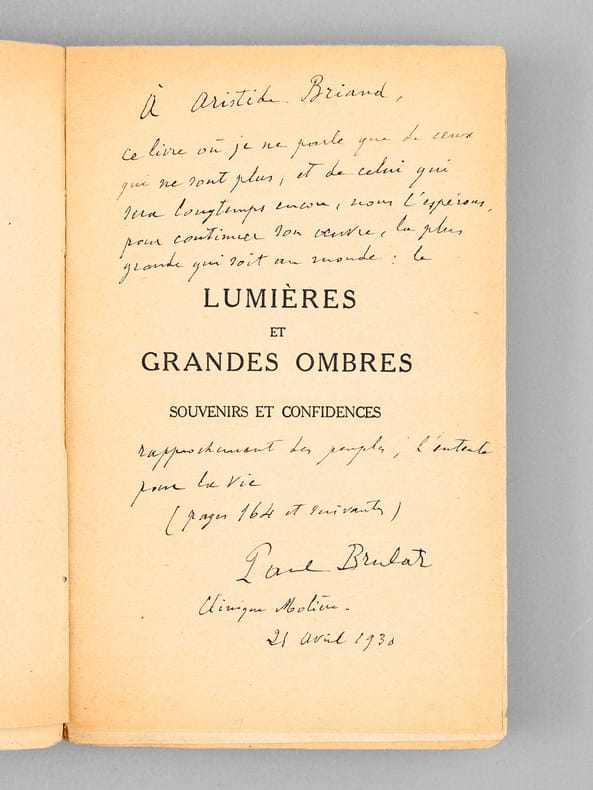 À Aristide Briand,
ce livre où je ne parle que de ceux
qui ne sont plus, et de celui qui
sera longtemps encore, nous l'espérons,
pour continuer son œuvre, la plus
grande qui soit au monde : le
LUMIÈRES
ET
GRANDES OMBRES
SOUVENIRS ET CONFIDENCES
rapprochement des peuples ; l'entente
pour la vie
(pages 164 et suivantes)
Paul Brulat
Clinique Molière.
21 avril 1930